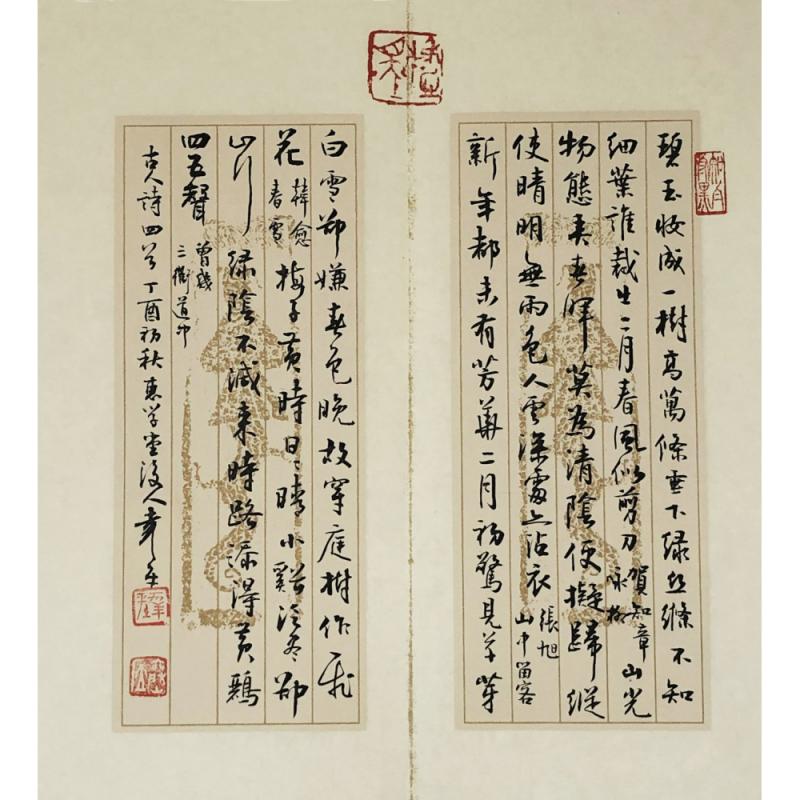 碧玉妝成一樹高萬條垂下绿丝絛不知
細葉誰裁出二月春風似剪刀 賀知章 咏柳 山光
物態弄春暉莫為清陰便擬歸縱
使晴明無雨色入雲深處亦沾衣 張旭 山中留客
新年都未有芳華二月初驚見草芽
白雪卻嫌春色晚故穿庭樹作飛
花 韓愈 春雪 梅子黃時日々晴小谿泛盡卻
山行绿陰不減來時路添得黃鸝
四五聲 曾幾 三衢道中
古人詩四首丁酉初秋惠学堂後人